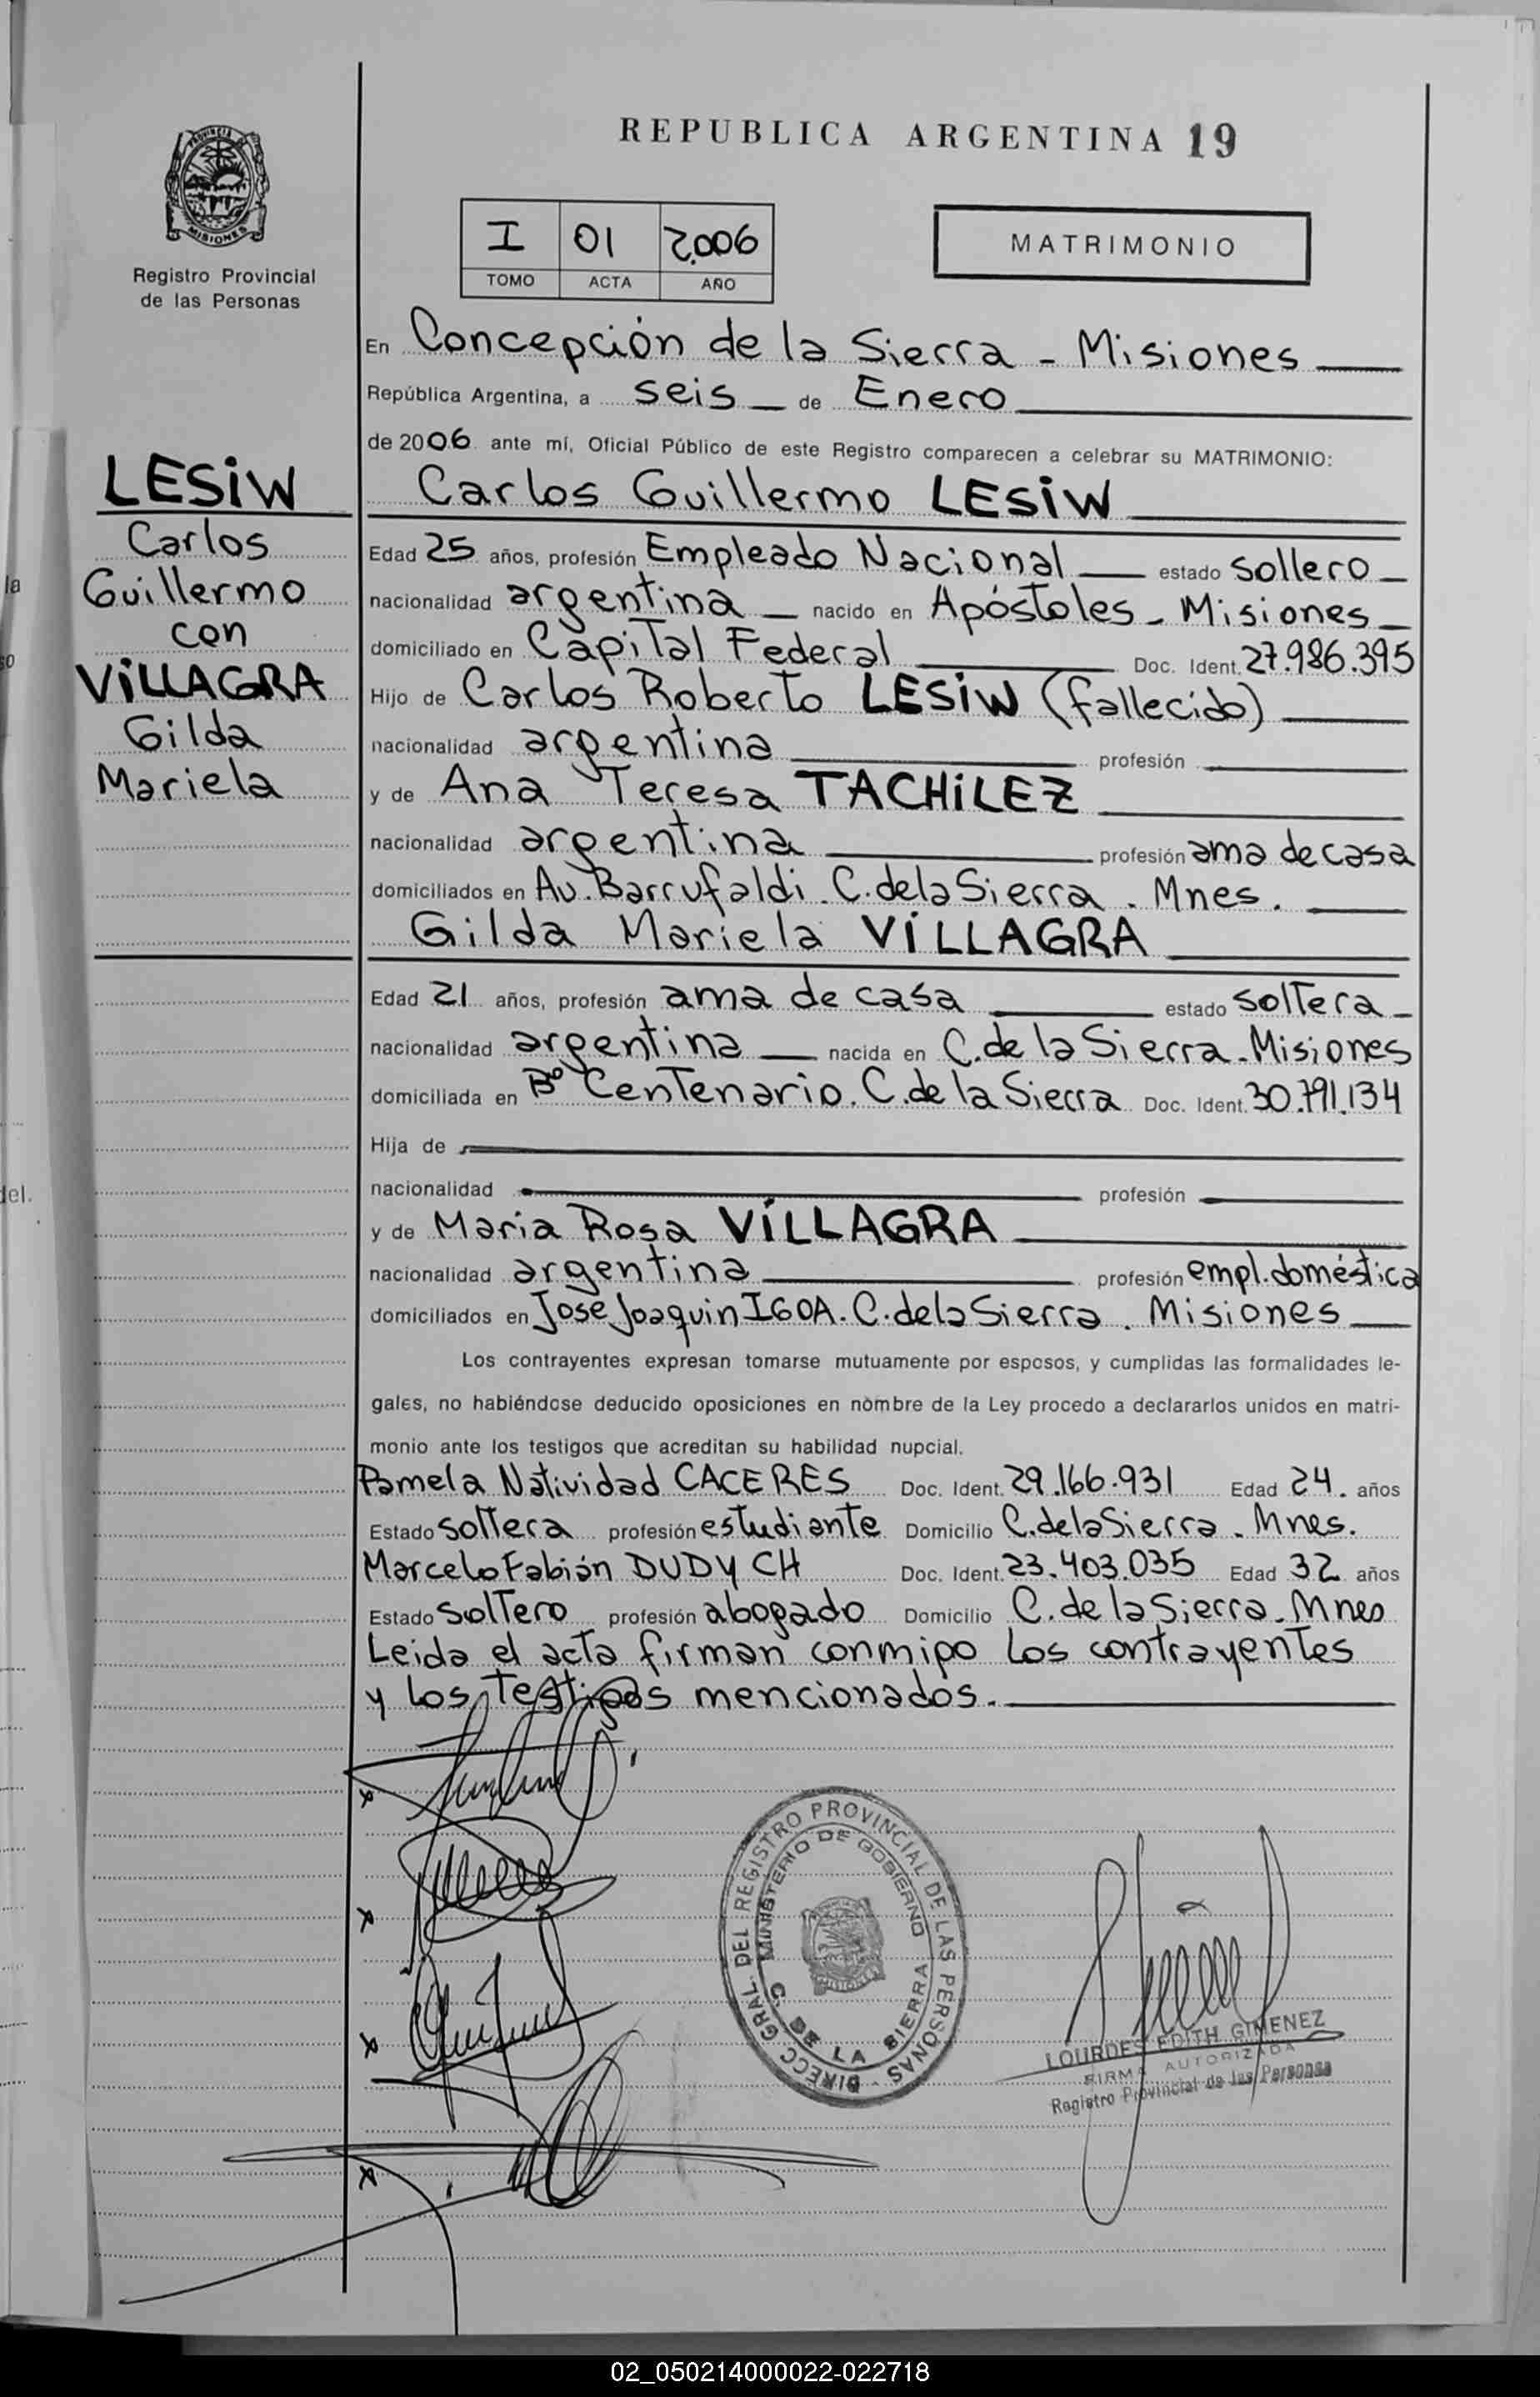 REPUBLICA ARGENTINA 19
PROVINCIA
MISIONES
Registro Provincial
de las Personas
I 01 2.006
TOMO ACTA AÑO
MATRIMONIO
En Concepción de la Sierra - Misiones
República Argentina, a seis de Enero
de 2006 ante mí, Oficial Público de este Registro comparecen a celebrar su MATRIMONIO:
LESiW
Carlos
Guillermo
con
ViLLAGRA
Gilda
Mariela
Carlos Guillermo LESiW
Edad 25 años, profesión Empleado Nacional estado sollero
nacionalidad argentina nacido en Apóstoles - Misiones
domiciliado en Capital Federal Doc. Ident. 27.986.395
Hijo de Carlos Roberto LESiW (fallecido)
nacionalidad argentina profesión
y de Ana Teresa TACHiLEZ
nacionalidad argentina profesión ama de casa
domiciliados en Av. Barrufaldi. C. de la Sierra. Mnes.
Gilda Mariela ViLLAGRA
Edad 21 años, profesión ama de casa estado soltera
nacionalidad argentina nacida en C. de la Sierra - Misiones
domiciliada en Bº Centenario. C. de la Sierra Doc. Ident. 30.791.134
Hija de
nacionalidad profesión
y de Maria Rosa ViLLAGRA
nacionalidad argentina profesión empl. doméstica
domiciliados en Jose Joaquin IGOA. C. de la Sierra. Misiones
Los contrayentes expresan tomarse mutuamente por esposos, y cumplidas las formalidades le-
gales, no habiéndose deducido oposiciones en nombre de la Ley procedo a declararlos unidos en matri-
monio ante los testigos que acreditan su habilidad nupcial.
Pamela Natividad CACERES Doc. Ident. 29.166.931 Edad 24. años
Estado soltera profesión estudiante Domicilio C. de la Sierra - Mnes.
Marcelo Fabián DUDYCH Doc. Ident. 23.403.035 Edad 32 años
Estado soltero profesión abogado Domicilio C. de la Sierra - Mnes
Leida el acta firman conmigo los contrayentes
y los testigos mencionados.
DIRECC GRAL. DEL REGISTRO PROVINCIAL DE LAS PERSONAS
MINISTERIO DE GOBIERNO
C. DE LA SIERRA
LOURDES EDITH GIMENEZ
FIRMA AUTORIZADA
Registro Provincial de las Personas
la
so
del.
02_050214000022-022718